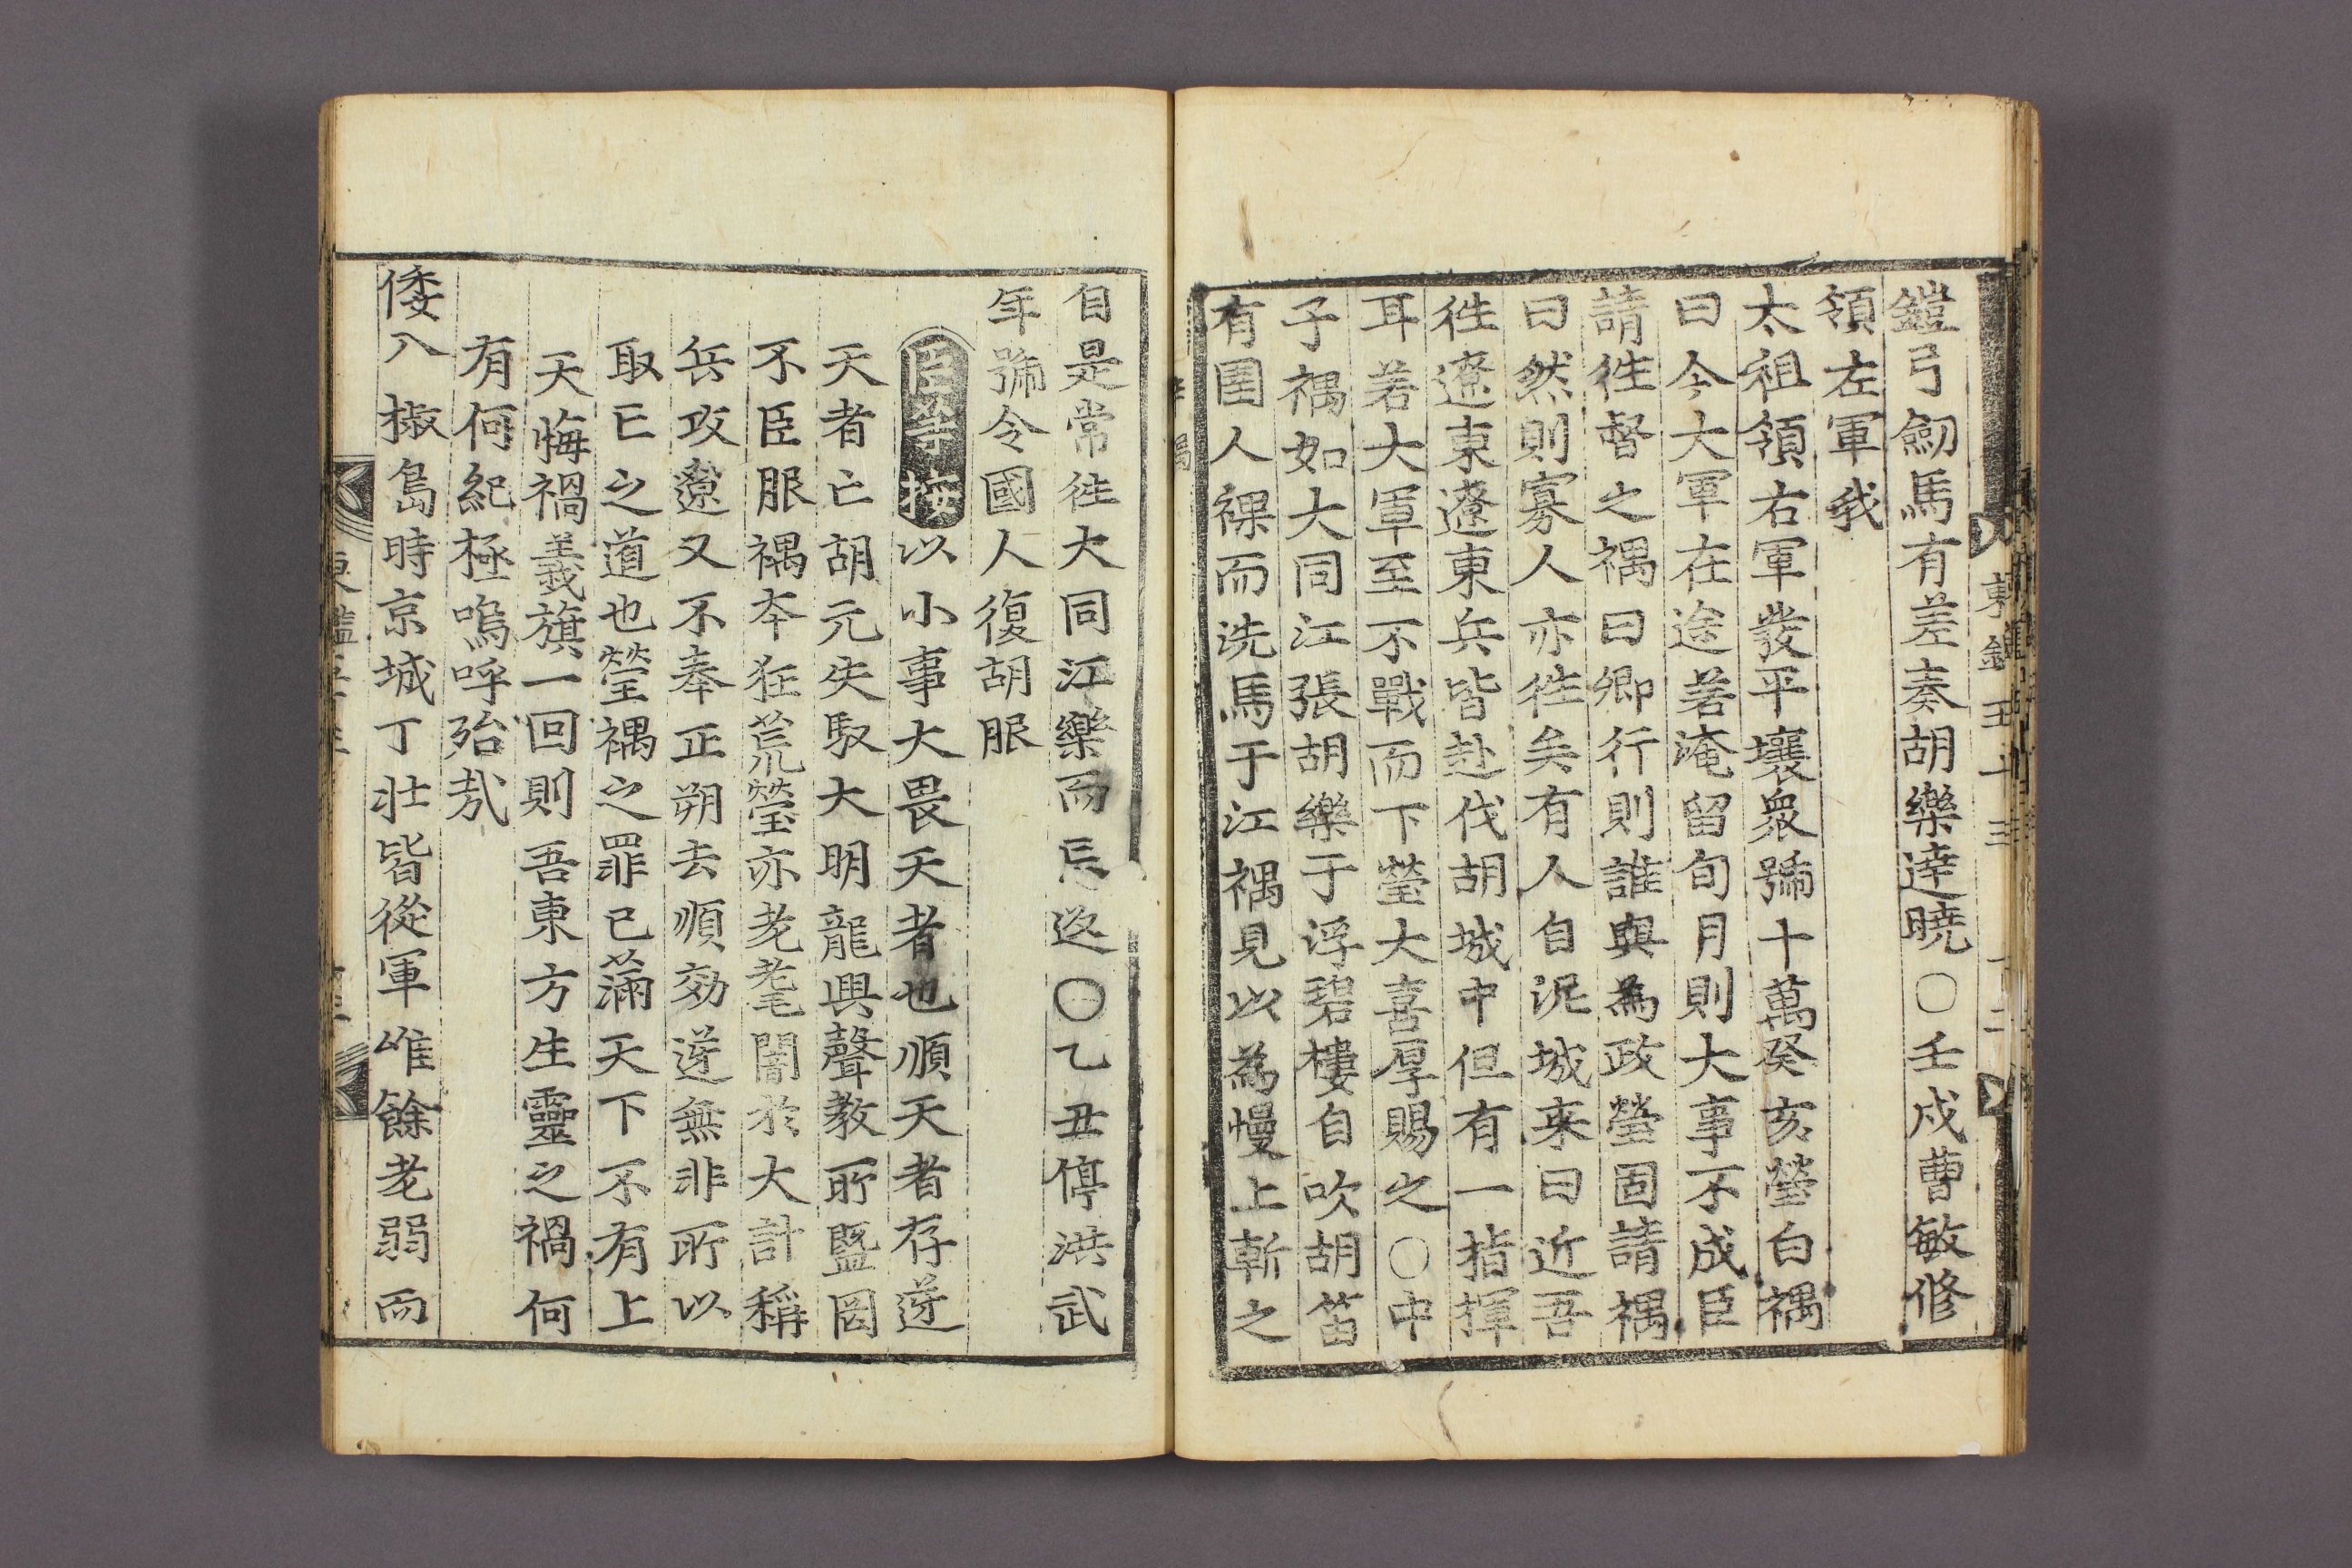 東鑑五十三
鎧弓劒馬有差奏胡樂達曉○壬戍曹敏修
領左軍我
太祖領右軍發平壤衆號十萬癸亥瑩白禑
曰今大軍在途若淹留旬月則大事不成臣
請徃督之禑曰卿行則誰與爲政瑩固請禑
曰然則寡人亦徃矣有人自泥城来曰近吾
徃遼東遼東兵皆赴伐胡城中但有一指揮
耳若大軍至不戰而下瑩大喜厚賜之○中
子禑如大同江張胡樂于浮碧樓自吹胡笛
有圉人裸而洗馬于江禑見以為慢上斬之
自是常徃大同江樂而忘返○乙丑停洪武
年號令國人復胡服
臣等按以小事大畏天者也順天者存逆
天者亡胡元失馭大明龍興聲教所曁罔
不臣服禑本狂荒瑩亦老耄闇於大計稱
兵攻遼又不奉正朔去順効逆無非所以
取亡之道也瑩禑之罪已滿天下不有上
天悔禍義旗一回則吾東方生靈之禍何
有何紀極嗚呼殆哉
倭入椒島時京城丁壮皆從軍唯餘老弱而